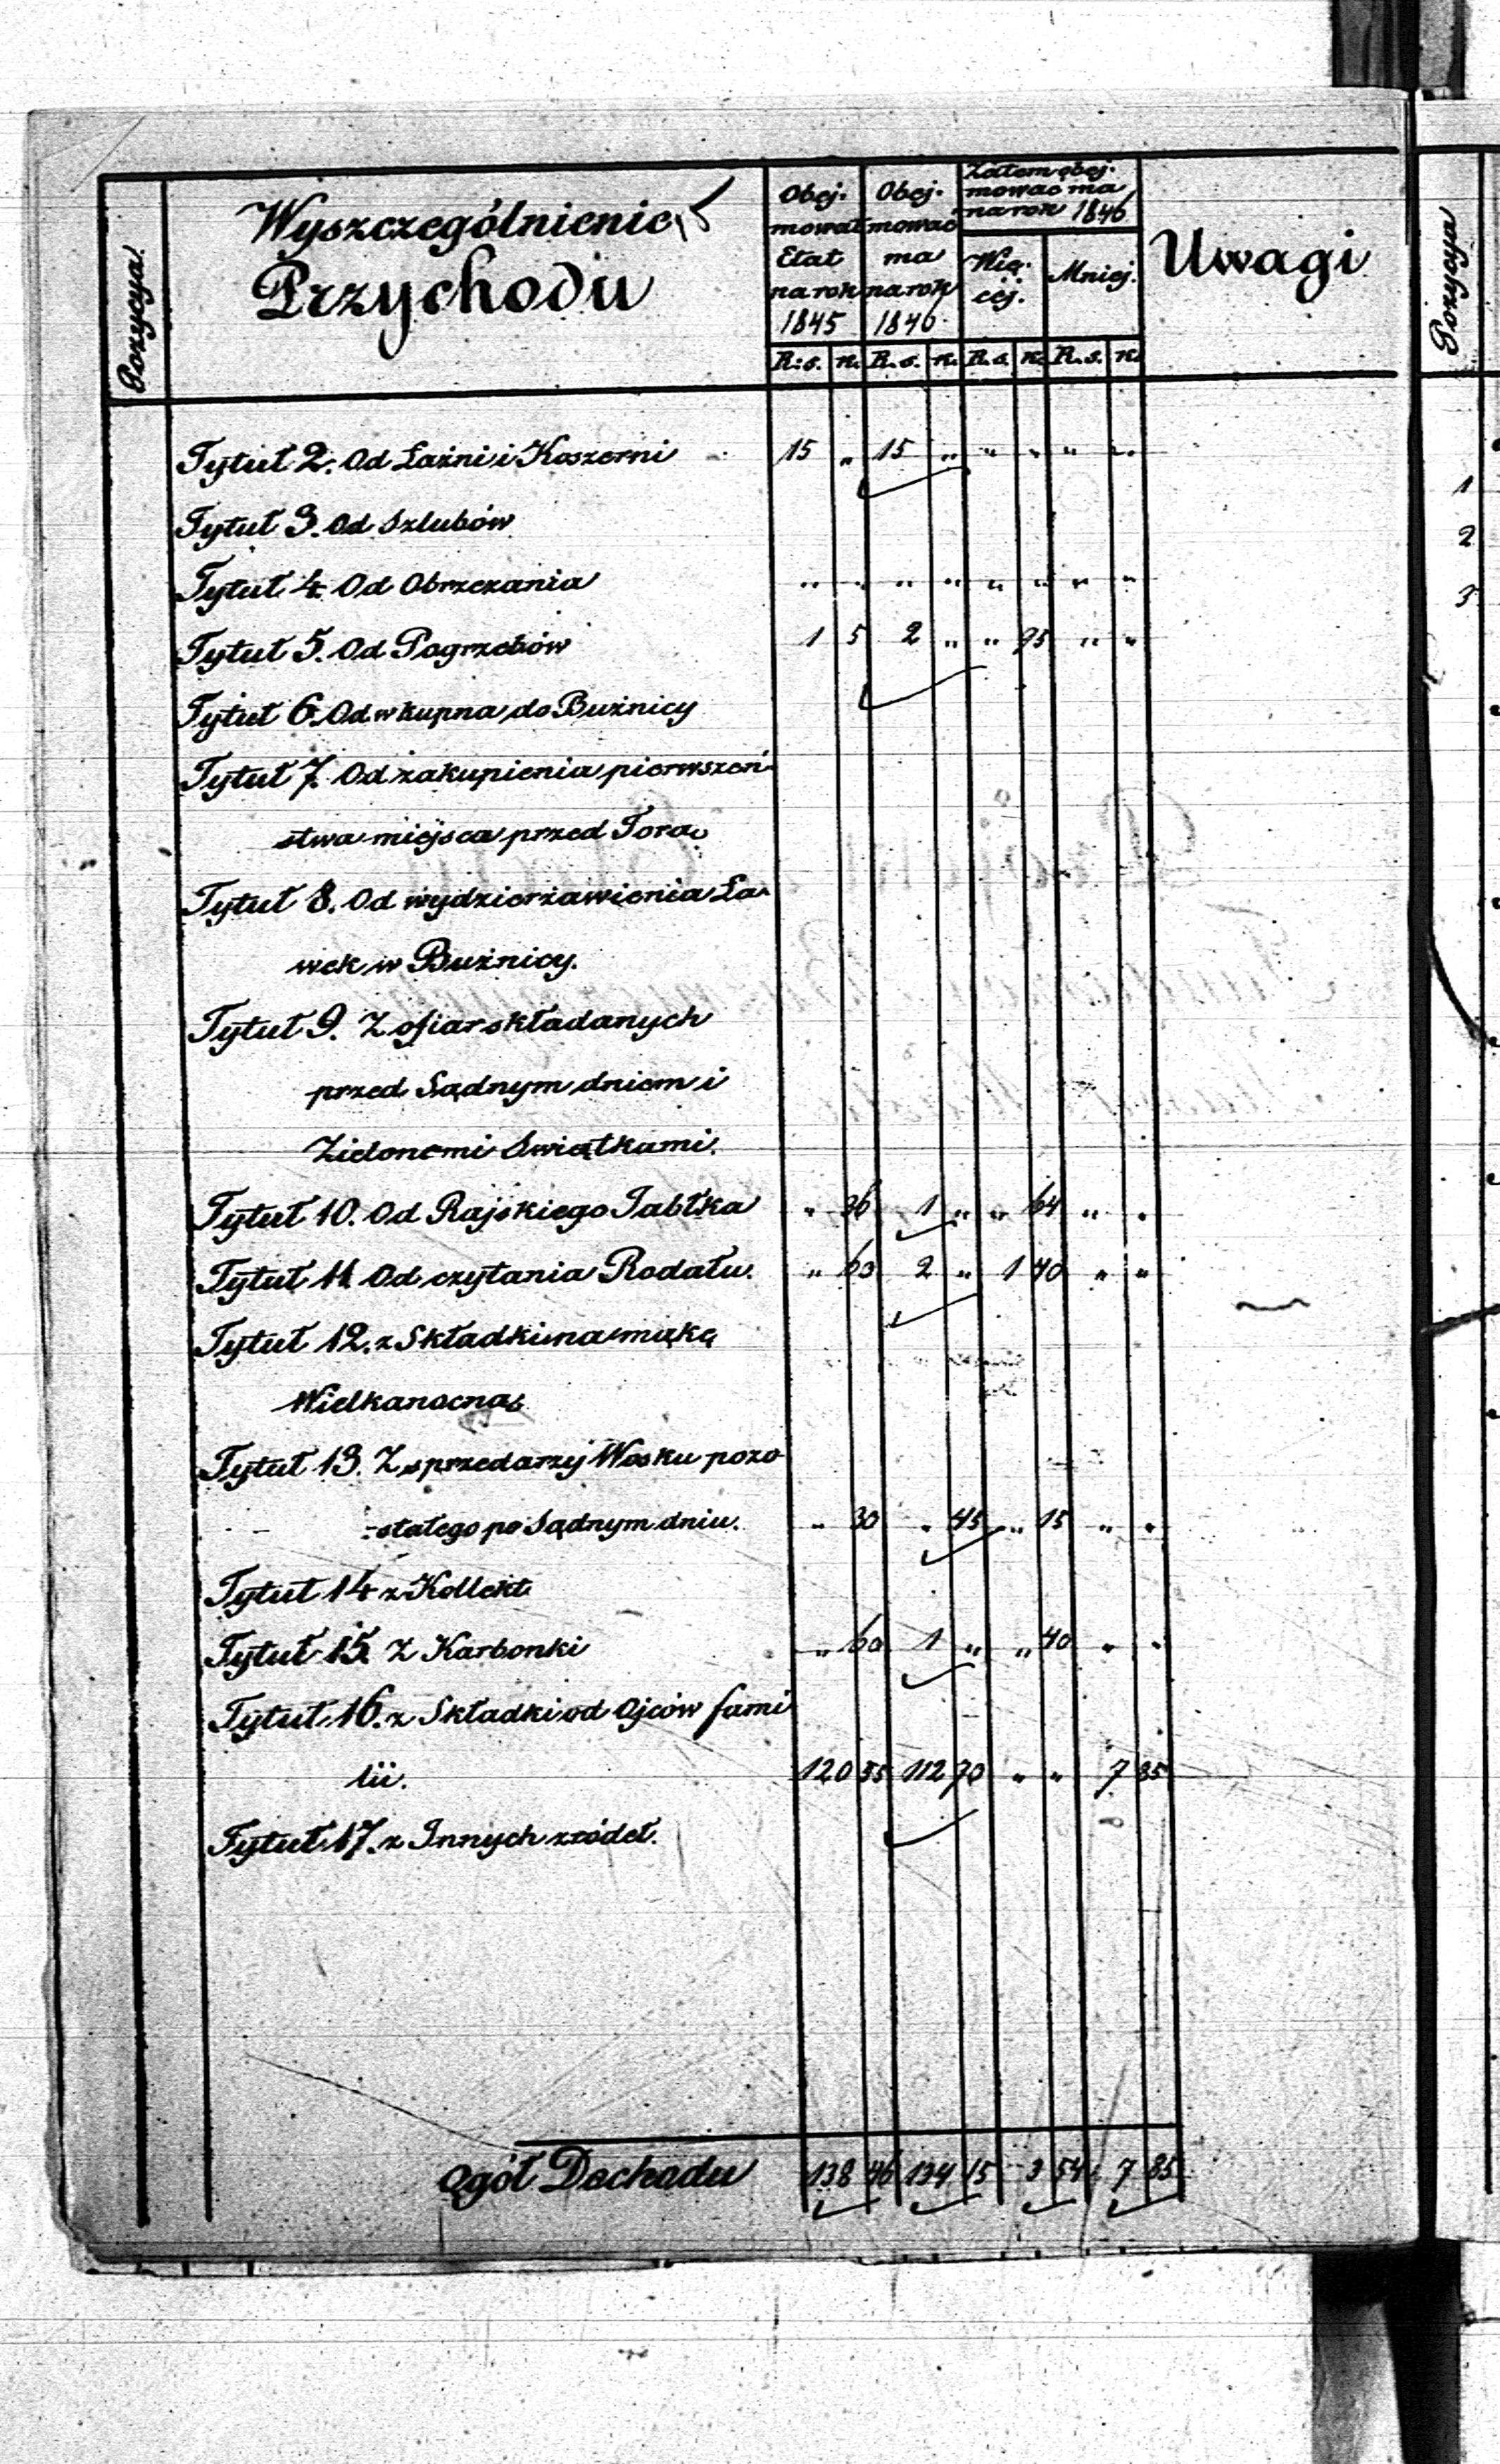 Pozycya.
Wyszczególnienie
Przychodu
Obej-
mował
Etat
na rok
1845
Obej-
mować
ma
na rok
1846
Zatem obej-
mować ma
na rok 1846
Wię-
céj.
Mniej.
Uwagi
R. s. k. R. s. k. R. s. k. R. s. k.
Tytuł 2. Od Łaźni i Koszerni 15 „ 15 „ „ „ „ „
Tytuł 3. Od Szlubów
Tytuł 4. Od Obrzezania „ „ „ „ „ „ „ „
Tytuł 5. Od Pogrzebów 1 5 2 „ „ 95 „ „
Tytuł 6. Od wkupna do Bużnicy
Tytuł 7. Od zakupienia pierwszeń-
stwa miejsca przed Torą
Tytuł 8. Od wydzierżawienia Ła-
wek w Bużnicy.
Tytuł 9. Z ofiar składanych
przed Sądnym dniem i
Zielonemi Swiątkami.
Tytuł 10. Od Rajskiego Jabłka „ 36 1 „ „ 64 „ „
Tytuł 11. Od czytania Rodału. „ 60 2 „ 1 40 „ „
Tytuł 12. z Składki na mąkę
Wielkanocną
Tytuł 13. Z sprzedarzy Wosku pozo-
stałego po Sądnym dniu. „ 30 „ 45 „ 15 „ „
Tytuł 14 z Kollekt
Tytuł 15. Z Karbonki „ 60 1 „ „ 40 „ „
Tytuł 16. z Składki od Ojców fami
lii. 120 55 112 70 „ „ 7 85
Tytuł 17. z Innych zródeł.
Ogół Dochodu 138 46 134 15 3 54 7 85
Pozycya
1
2
3